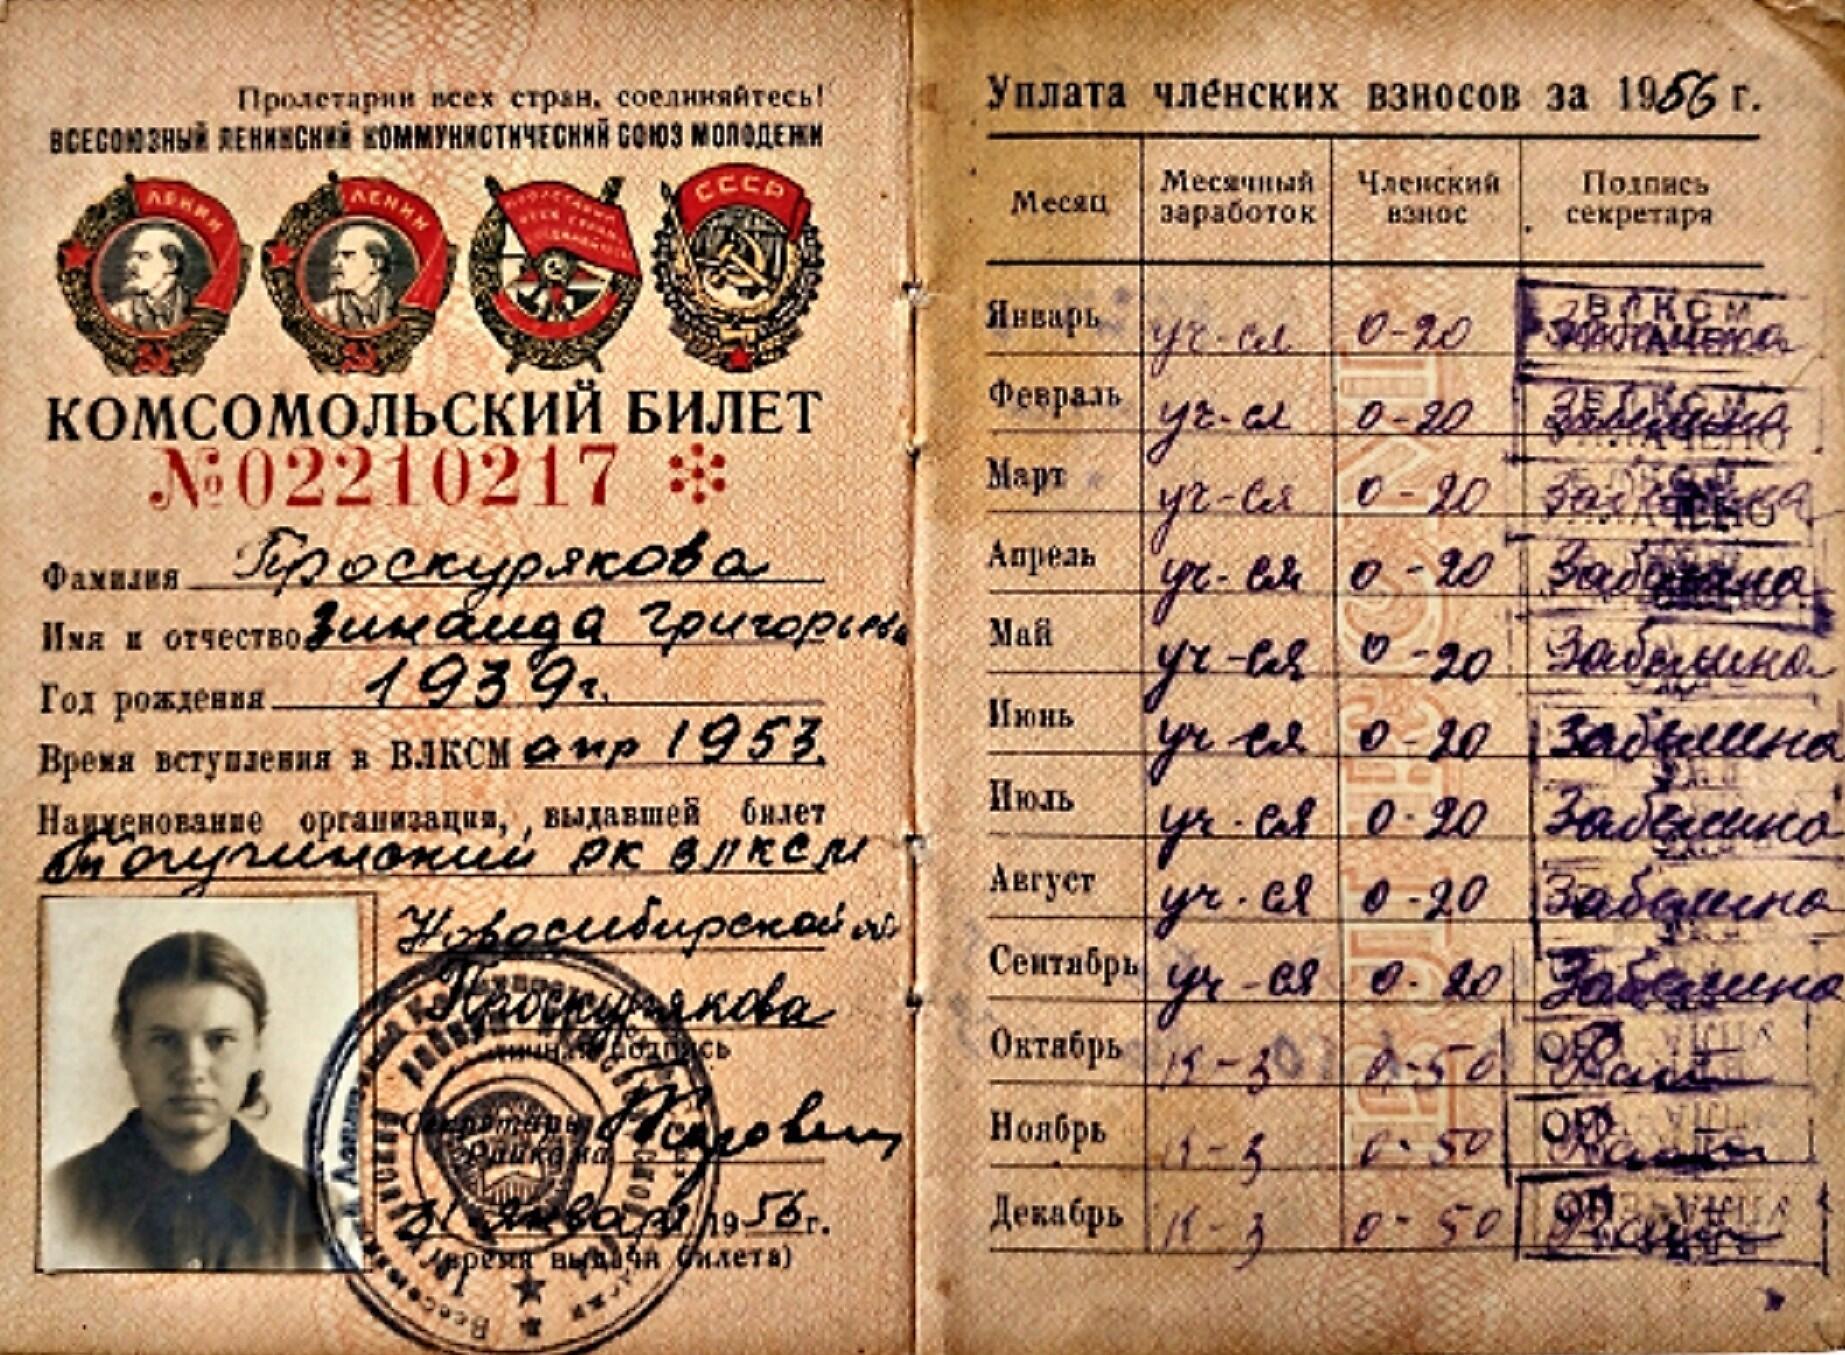 Пролетарии всех стран, соединяйтесь!
ВСЕСОЮЗНЫЙ ЛЕНИНСКИЙ КОММУНИСТИЧЕСКИЙ СОЮЗ МОЛОДЕЖИ
ЛЕНИН ЛЕНИН СССР
КОМСОМОЛЬСКИЙ БИЛЕТ
№02210217
Фамилия Проскурякова
Имя и отчество Зинаида Григорьевна
Год рождения 1939 г.
Время вступления в ВЛКСМ апр 1953.
Наименование организации, выдавшей билет
Тогучинский РК ВЛКСМ
Новосибирской об
Проскурякова
личная подпись
Секретарь
Райкома
31 января 1956 г.
(время выдачи билета)
Уплата членских взносов за 1956 г.
Месяц Месячный заработок Членский взнос Подпись секретаря
Январь уч-ся 0-20
Февраль уч-ся 0-20 Забелина
Март уч-ся 0-20
Апрель уч-ся 0-20 Забелина
Май уч-ся 0-20 Забелина
Июнь уч-ся 0-20 Забелина
Июль уч-ся 0-20 Забелина
Август уч-ся 0-20 Забелина
Сентябрь уч-ся 0-20 Забелина
Октябрь к-з 0-50
Ноябрь к-з 0-50
Декабрь к-з 0-50
ВЛКСМ